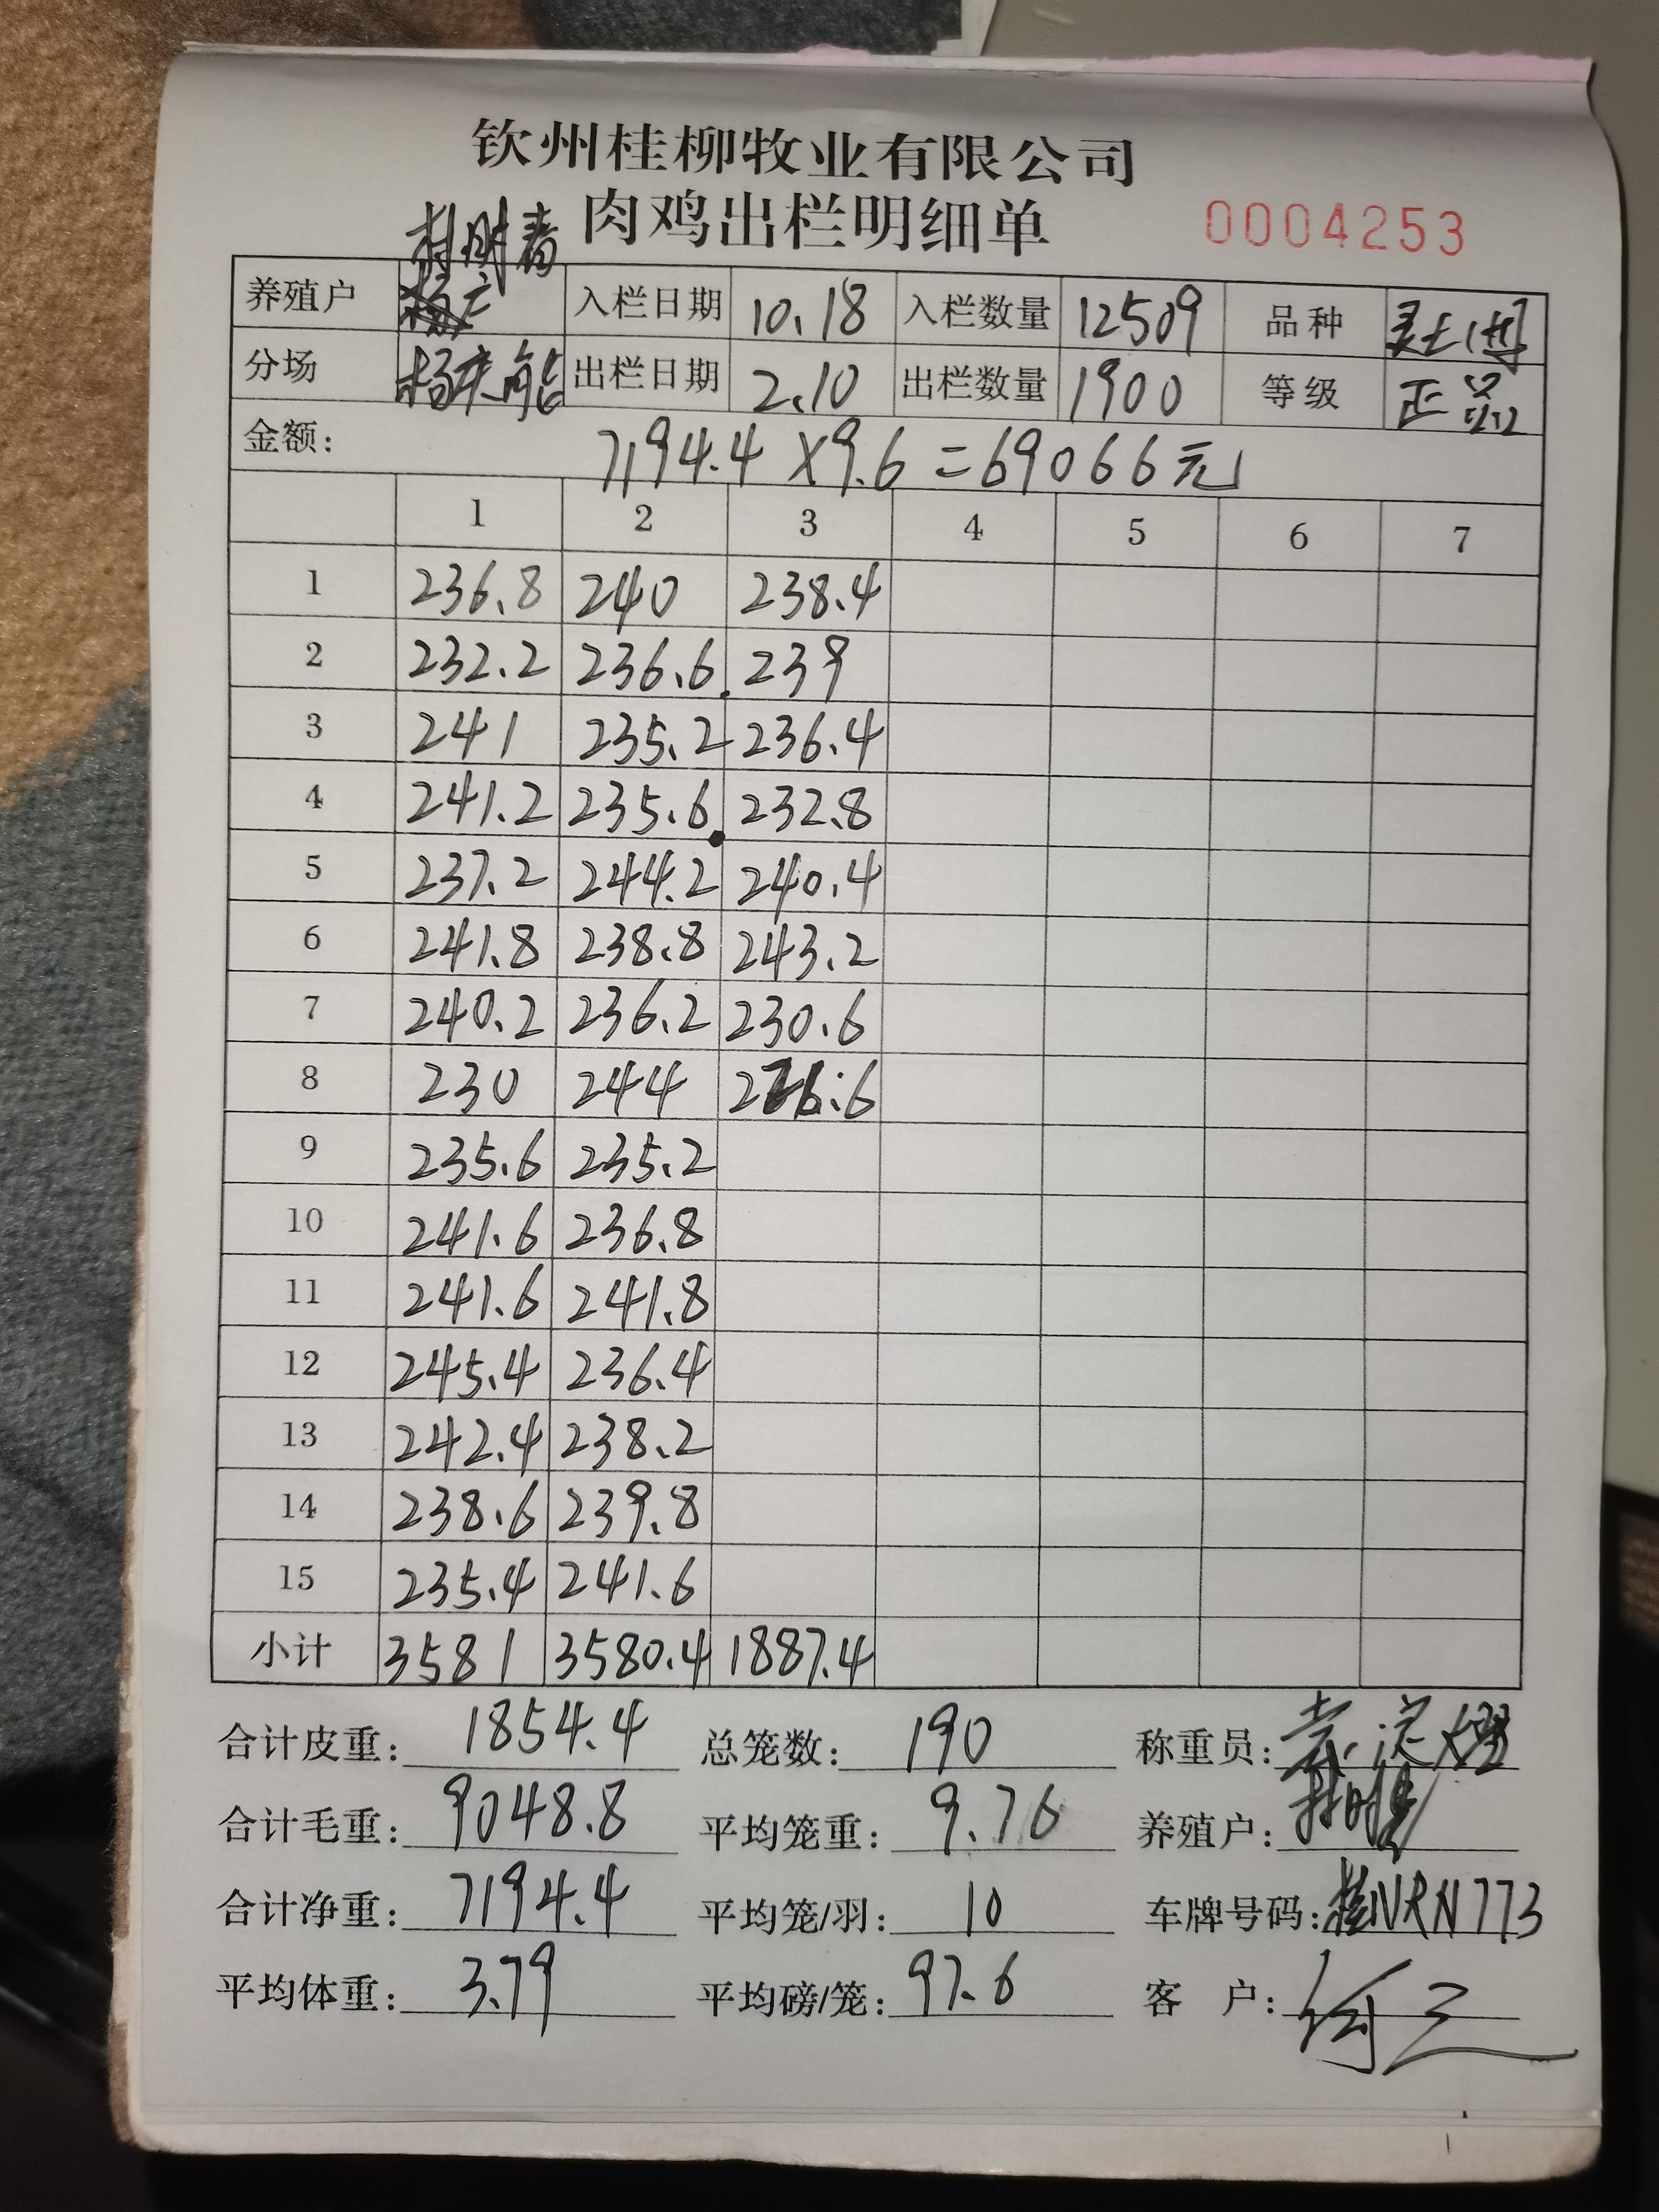 钦州桂柳牧业有限公司
肉鸡出栏明细单 0004253
养殖户 入栏日期 10.18 入栏数量 12509 品种
分场 出栏日期 2.10 出栏数量 1900 等级 正品
金额: 7194.4×9.6=69066元
1 2 3 4 5 6 7
1 236.8 240 238.4
2 232.2 236.6 239
3 241 235.2 236.4
4 241.2 235.6 232.8
5 237.2 244.2 240.4
6 241.8 238.8 243.2
7 240.2 236.2 230.6
8 230 244
9 235.6 235.2
10 241.6 236.8
11 241.6 241.8
12 245.4 236.4
13 242.4 238.2
14 238.6 239.8
15 235.4 241.6
小计 3581 3580.4 1887.4
合计皮重: 1854.4 总笼数: 190 称重员:
合计毛重: 9048.8 平均笼重: 9.76 养殖户:
合计净重: 7194.4 平均笼/羽: 10 车牌号码: 桂NRN773
平均体重: 3.79 平均磅/笼: 97.6 客 户: 何三